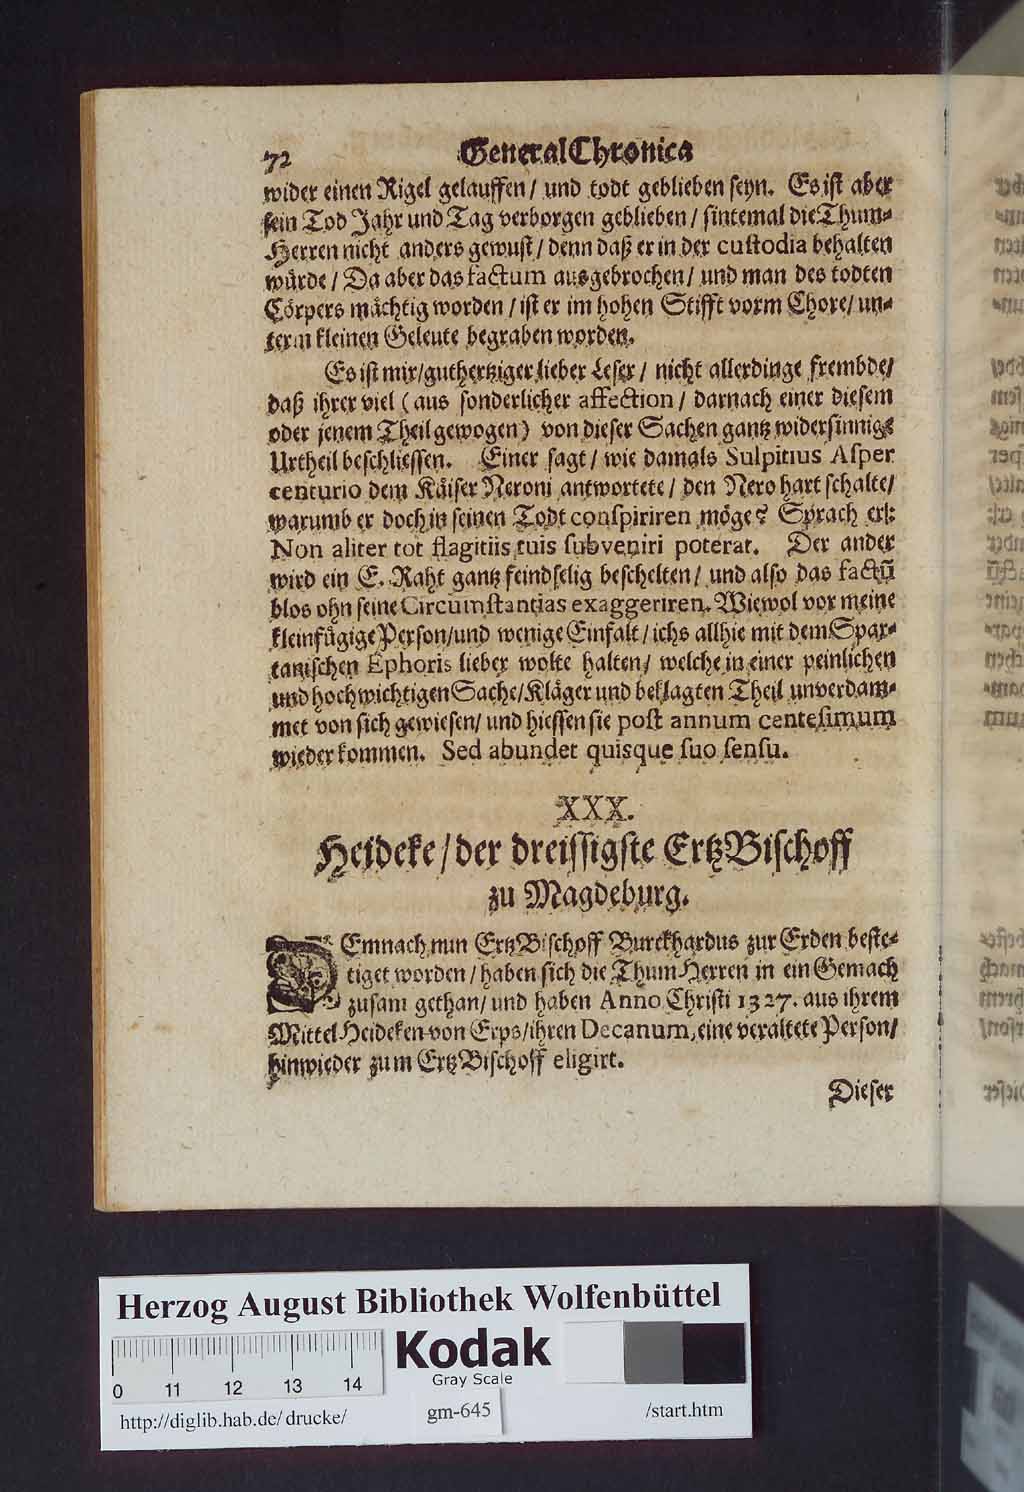 72 General Chronica
wider einen Rigel gelauffen/ und todt geblieben seyn. Es ist aber
sein Tod Jahr und Tag verborgen geblieben/ sintemal die Thum-
Herren nicht anders gewust/ denn daß er in der custodia behalten
würde/ Da aber das factum ausgebrochen/ und man des todten
Cörpers mächtig worden/ ist er im hohen Stifft vorm Chore/ un-
term kleinen Geleute begraben worden.
Es ist mir/ guthertziger lieber Leser/ nicht allerdinge frembde/
daß ihrer viel (aus sonderlicher affection/ darnach einer diesem
oder jenem Theil gewogen) von dieser Sachen gantz widersinnigs
Urtheil beschliessen. Einer sagt/ wie damals Sulpitius Asper
centurio dem Käiser Neroni antwortete/ den Nero hart schalte/
warumb er doch in seinen Todt conspiriren möge? Sprach er:
Non aliter tot flagitiis tuis subveniri poterat. Der ander
wird ein E. Raht gantz feindselig beschelten/ und also das factū
blos ohn seine Circumstantias exaggeriren. Wiewol vor meine
kleinfügige Person/ und wenige Einfalt/ ichs allhie mit dem Spar-
tanischen Ephoris lieber wolte halten/ welche in einer peinlichen
und hochwichtigen Sache/ Kläger und beklagten Theil unverdam-
met von sich gewiesen/ und hiessen sie post annum centesimum
wieder kommen. Sed abundet quisque suo sensu.
XXX.
Heideke/ der dreissigste ErtzBischoff
zu Magdeburg.
DEmnach nun ErtzBischoff Burckhardus zur Erden beste-
tiget worden/ haben sich die ThumHerren in ein Gemach
zusam gethan/ und haben Anno Christi 1327. aus ihrem
Mittel Heideken von Erps/ ihren Decanum, eine veraltete Person/
hinwieder zum ErtzBischoff eligirt.
Dieser
Herzog August Bibliothek Wolfenbüttel
Kodak
Gray Scale
0 11 12 13 14
http://diglib.hab.de/drucke/ gm-645 /start.htm